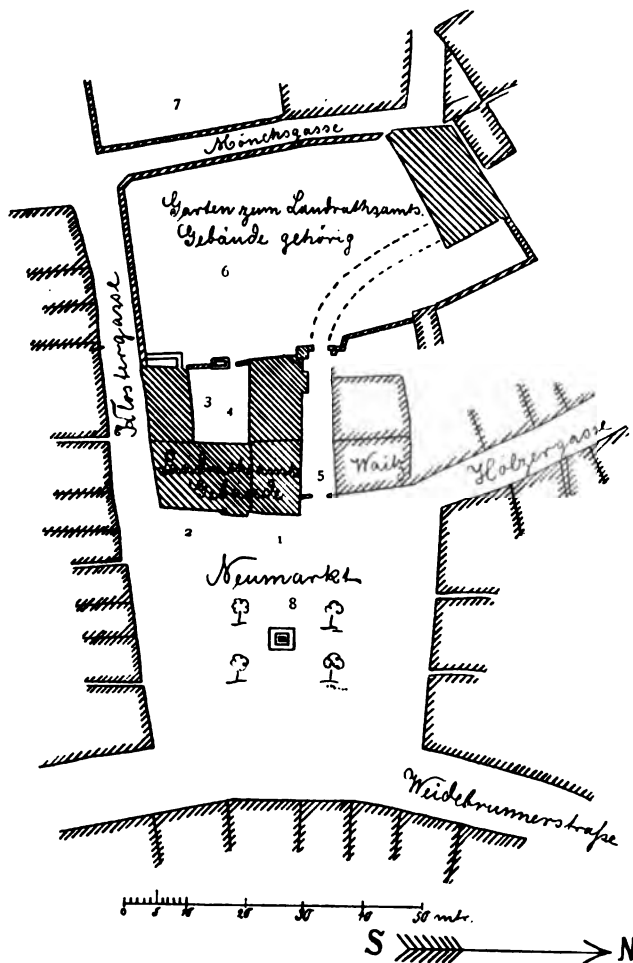 7
Mönchsgasse
Garten zum Landrathsamts-
Gebäude gehörig
6
Klostergasse
3
4
Landrathsamts
Gebäude
5
Waitz
Hölzergasse
2
1
Neumarkt
8
Weidebrunnerstraße
0 5 10 20 30 40 50 mtr.
S N